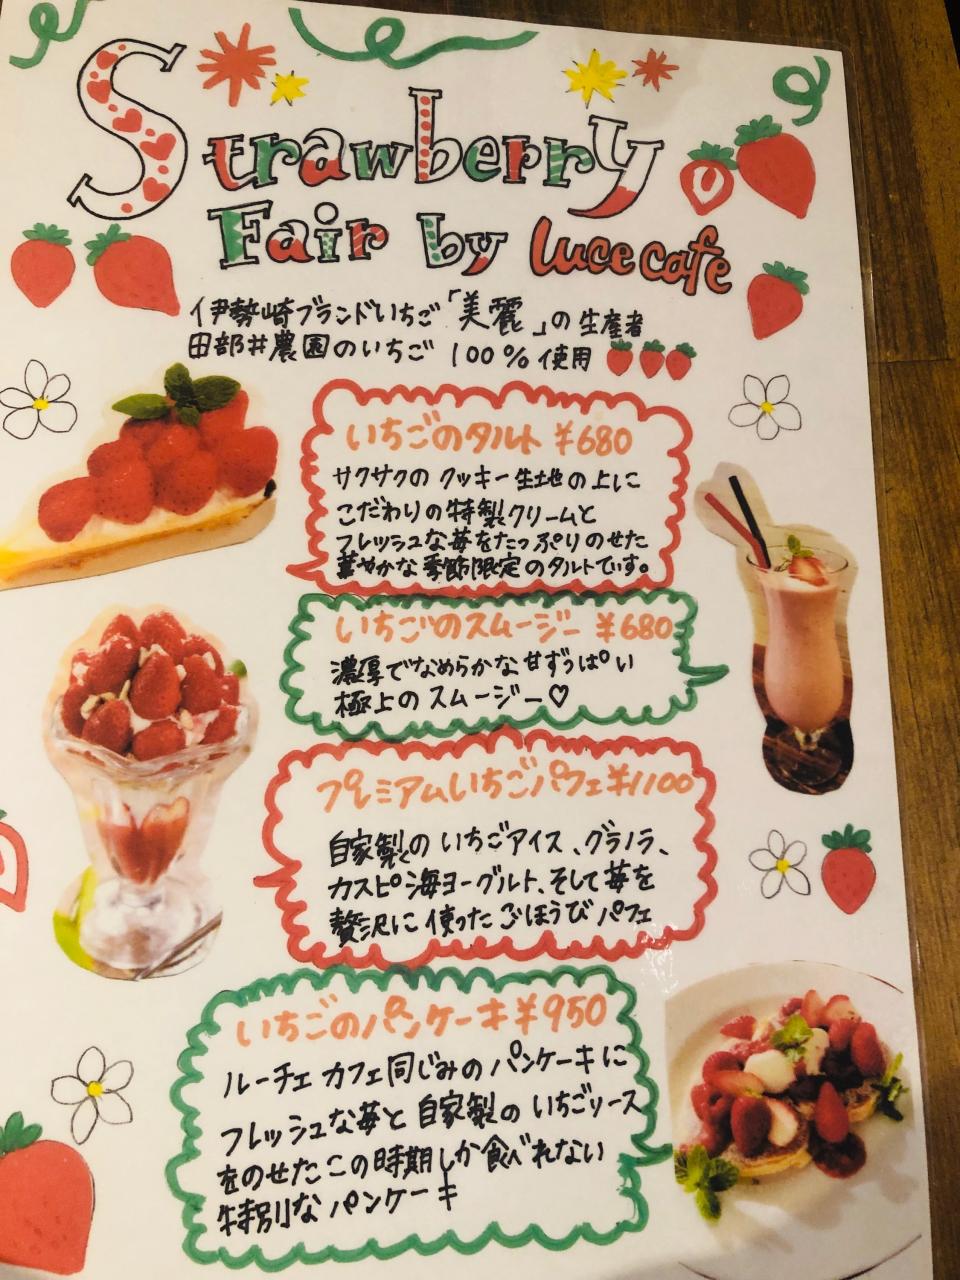 Strawberry
Fair by luce cafe
伊勢崎ブランドいちご「美麗」の生産者
田部井農園のいちご 100%使用
いちごのタルト ¥680
サクサクの クッキー生地の上に
こだわりの特製クリームと
フレッシュな苺をたっぷりのせた
華やかな季節限定のタルトです。
いちごのスムージー ¥680
濃厚でなめらかな甘ずっぱい
極上のスムージー♡
プレミアムいちごパフェ¥1100
自家製のいちごアイス、グラノラ、
カスピ海ヨーグルト、そして苺を
贅沢に使ったごほうびパフェ
いちごのパンケーキ¥950
ルーチェ カフェ同じみのパンケーキに
フレッシュな苺と自家製のいちごソース
をのせたこの時期しか食べれない
特別なパンケーキ